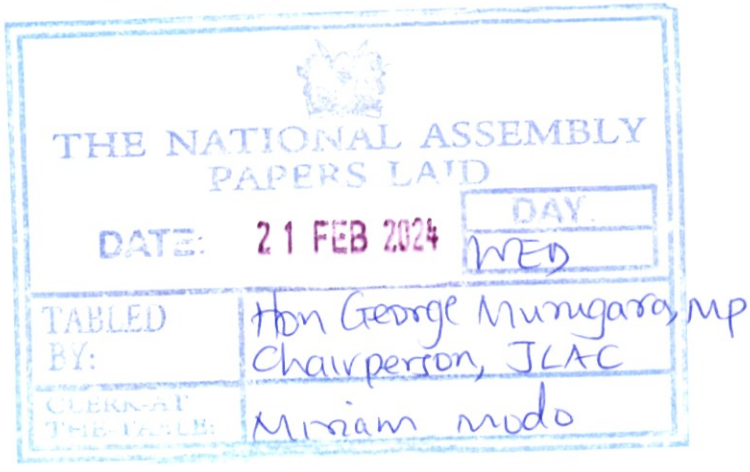 THE NATIONAL ASSEMBLY
PAPERS LAID
DATE: 21 FEB 2024
DAY.
WED
TABLED BY:
Hon George Murugara, MP
Chairperson, JLAC
CLERK-AT THE-TABLE:
Miriam Modo